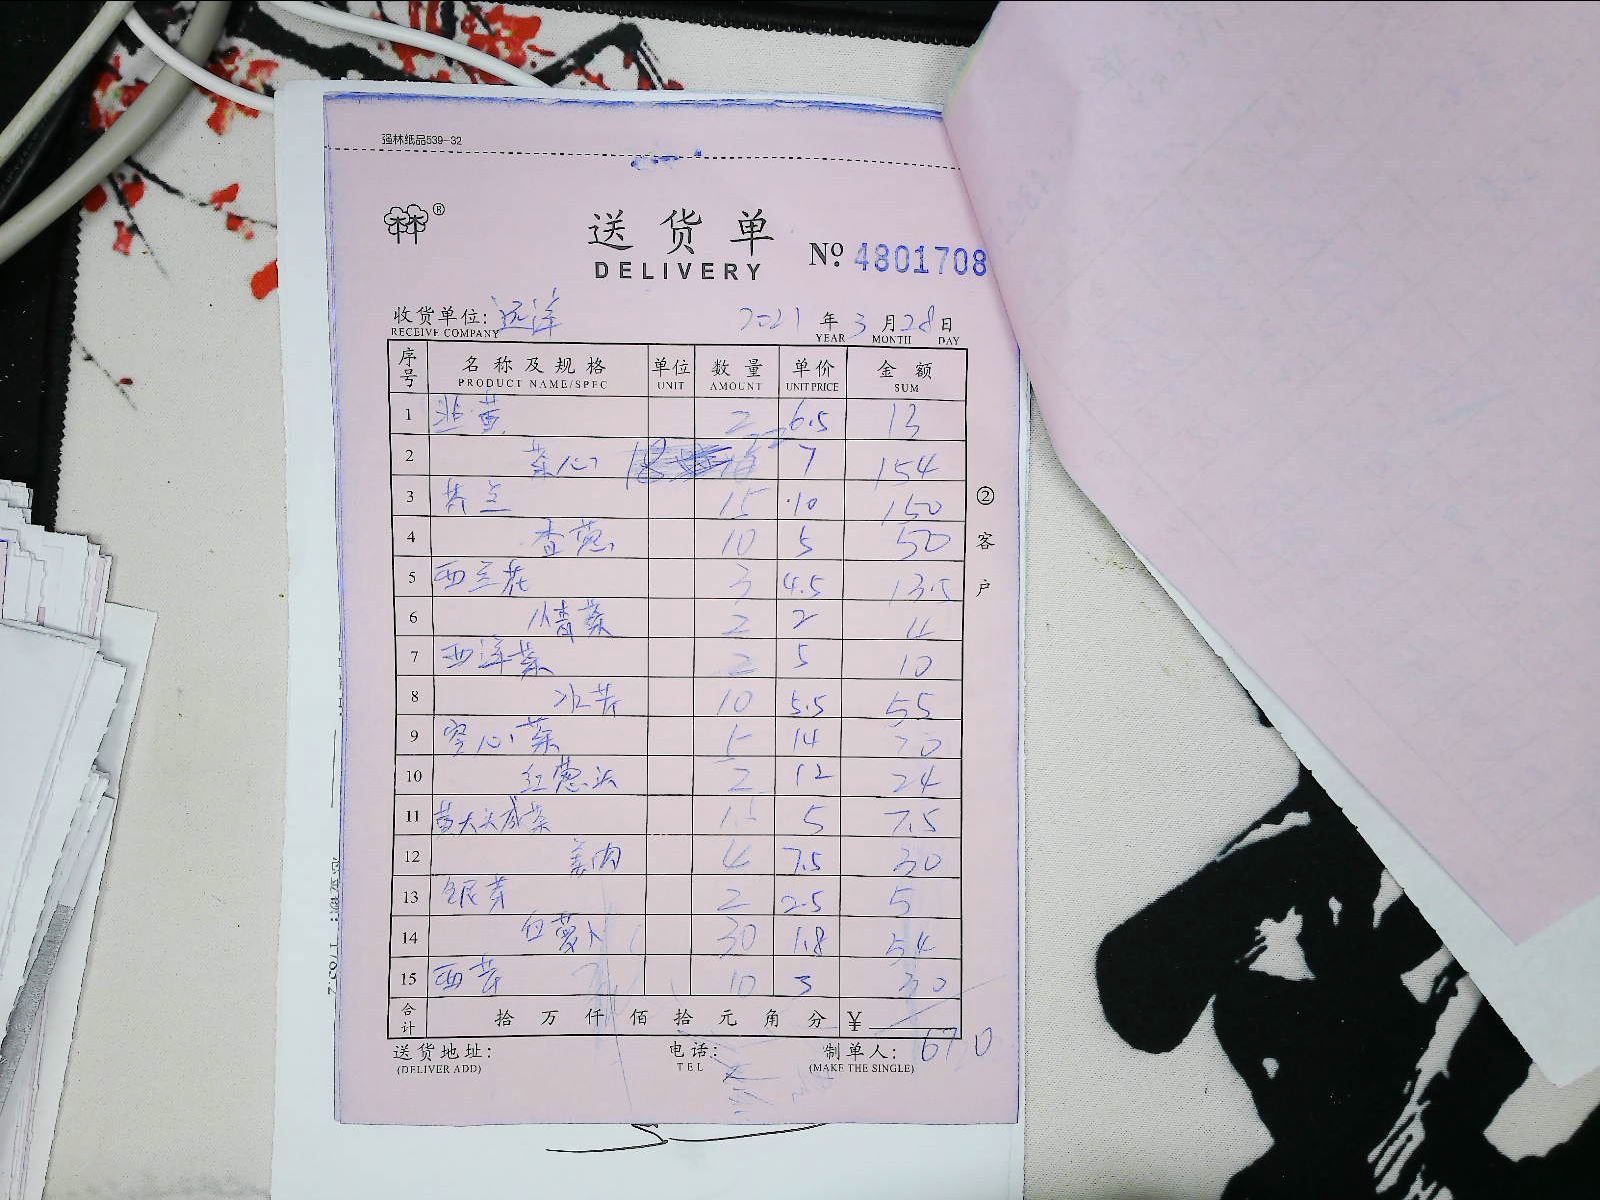 强林纸品539-32
林林®
送货单
DELIVERY
№ 4801708
收货单位: 远洋 2021 年 3 月 28 日
RECEIVE COMPANY YEAR MONTH DAY
序号 名称及规格 单位 数量 单价 金额
PRODUCT NAME/SPEC UNIT AMOUNT UNIT PRICE SUM
1 韭黄 2 6.5 13
2 菜心 18 7 154
3 芥兰 15 10 150
4 香葱 10 5 50
5 西兰花 3 4.5 13.5
6 小青菜 2 2 4
7 西洋菜 2 5 10
8 水芹 10 5.5 55
9 空心菜 5 14 70
10 红葱头 2 12 24
11 黄大头咸菜 1.5 5 7.5
12 姜肉 4 7.5 30
13 银芽 2 2.5 5
14 白萝卜 30 1.8 54
15 西芹 10 3 30
合计 拾 万 仟 佰 拾 元 角 分 ¥
670
送货地址: 电话: 制单人:
(DELIVER ADD) TEL (MAKE THE SINGLE)
②客户